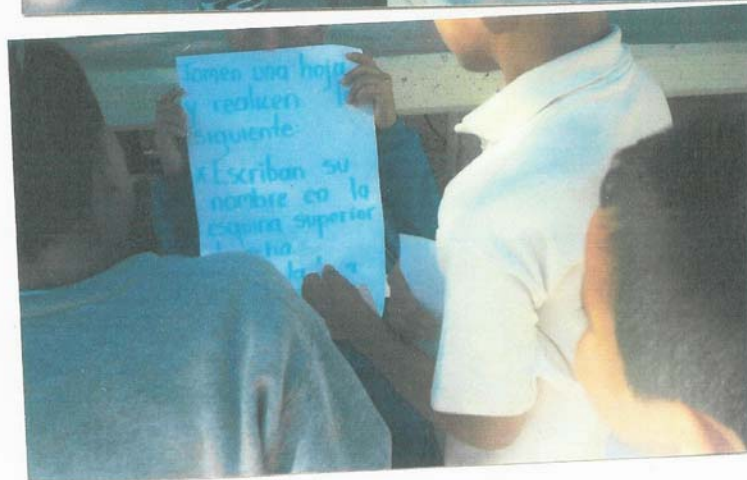 Tomen una hoja
y realicen
siguiente:
* Escriban su
nombre en la
esquina superior